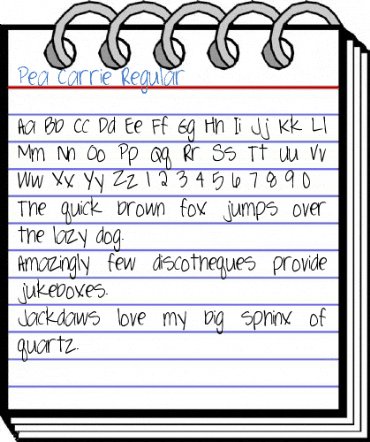 Pea Carrie Regular
Aa Bb Cc Dd Ee Ff Gg Hh Ii Jj Kk Ll
Mm Nn Oo Pp Qq Rr Ss Tt Uu Vv
Ww Xx Yy Zz 1 2 3 4 5 6 7 8 9 0
The quick brown fox jumps over
the lazy dog.
Amazingly few discotheques provide
jukeboxes.
Jackdaws love my big sphinx of
quartz.